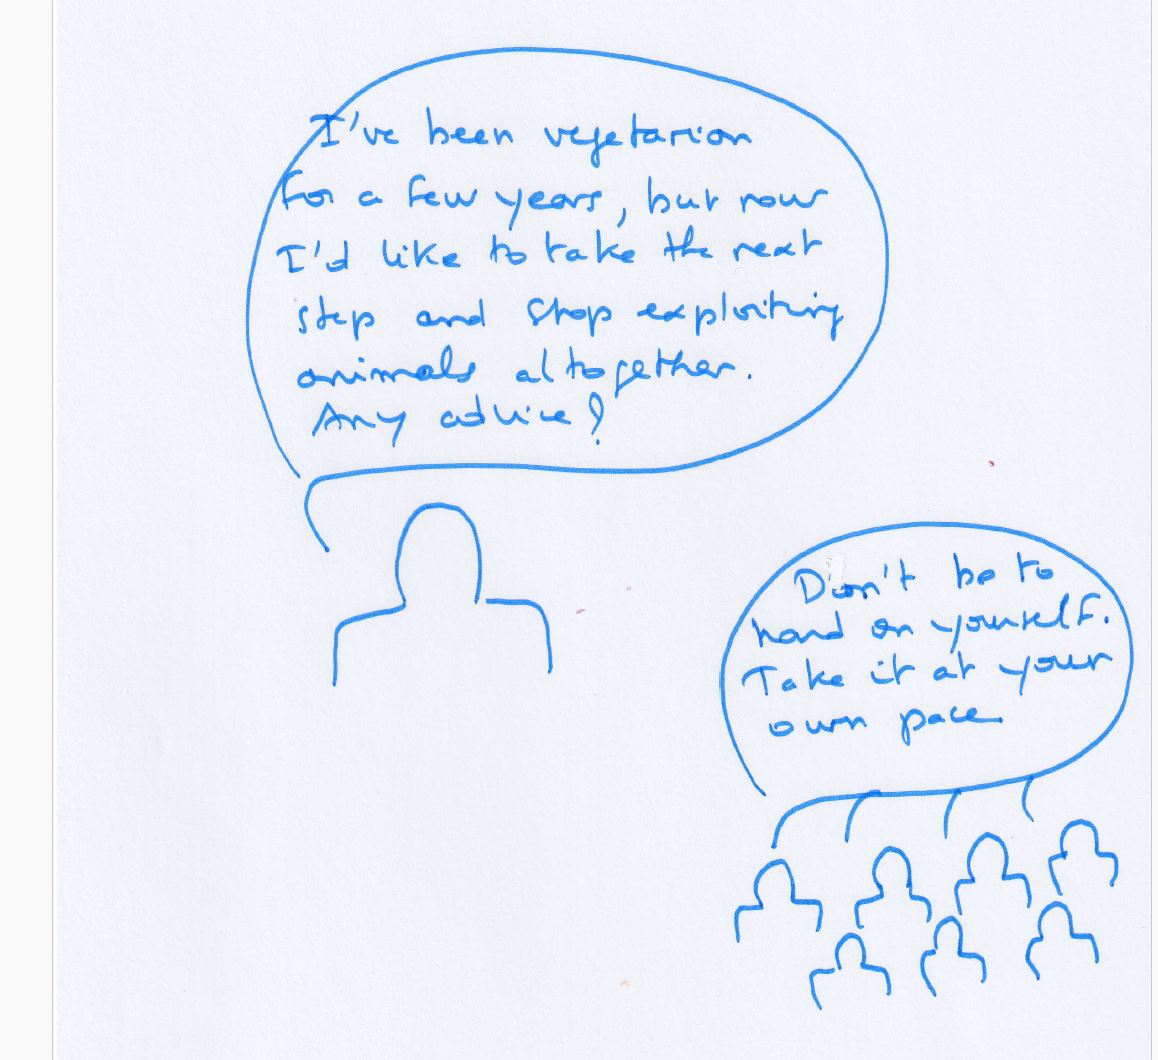 I've been vegetarian
for a few years, but now
I'd like to take the next
step and stop exploiting
animals altogether.
Any advice?
Don't be to
hard on yourself.
Take it at your
own pace.